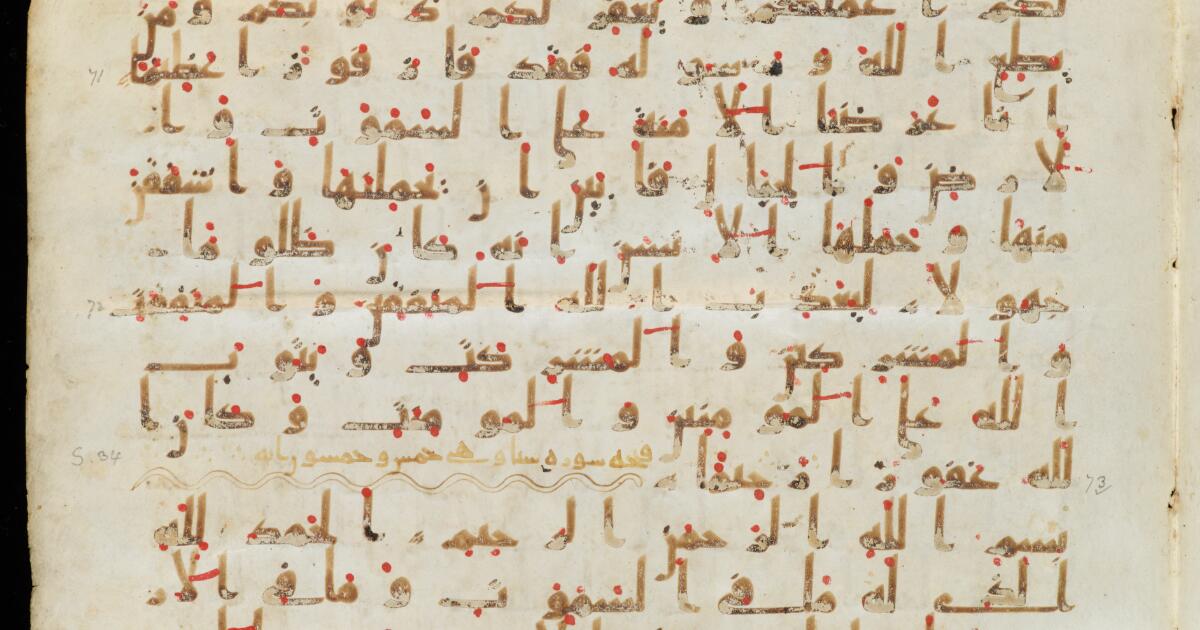 لكم اعملكم و يغفر لكم ذنوبكم و من
71 يطع الله و رسوله فقد فاز فوزا عظيما
انا عرضنا الامنة على السموت و ا
لارض و الجبال فابين ان يحملنها و اشفقن
منها و حملها الانسن انه كان ظلوما
72 جهولا ليعذب الله المنفقين و المنفقت
و المشركين و المشركت و يتوب
الله على المومنين و المومنت و كان ا
لله غفورا رحيما 73
فتحه سورة سبا وهي خمس و خمسون اية S. 34
بسم الله الرحمن الرحيم الحمد لله
الذي له ما في السموت و ما في الار